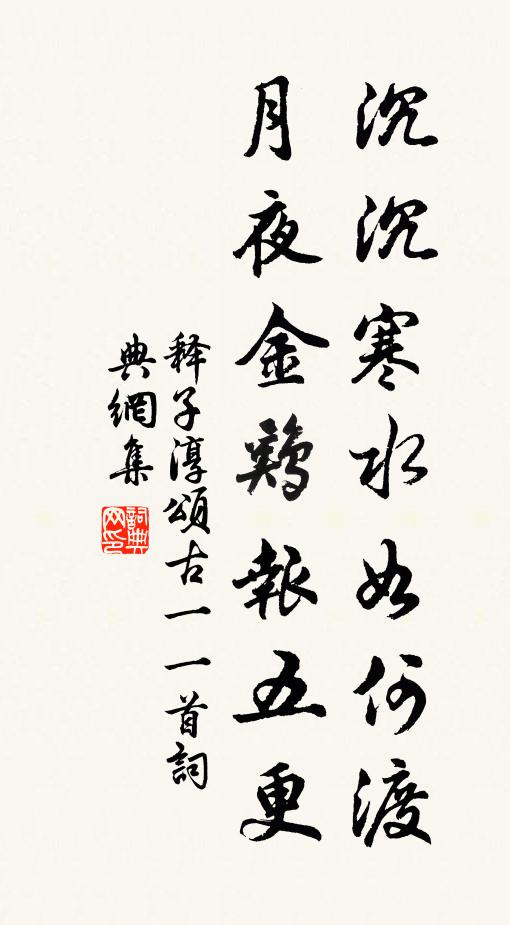 沉沉寒水如何渡
月夜金鷄報五更
释子淳頌古一一首詞
典網集
詞典
网印